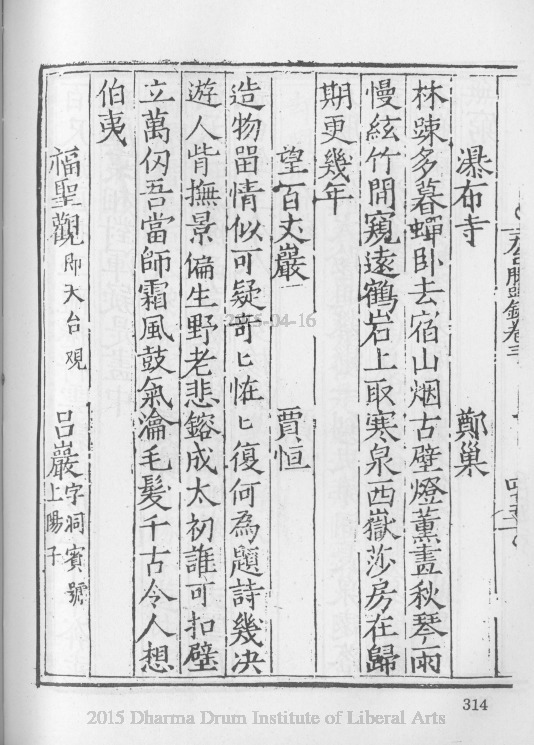 瀑布寺　鄭巢
林踈多暮蟬卧去宿山烟古壁燈薰畫秋琴雨
慢絃竹間窺遠鶴岩上取寒泉西嶽莎房在歸
期更幾年
望百丈巖　賈恒
造物畱情似可疑奇匕恠匕復何為題詩幾决
遊人眥撫景偏生野老悲鎔成太初誰可扣壁
立萬仞吾當師霜風鼓氣瀹毛髮千古令人想
伯夷
福聖觀即天台观　吕巖字洞賓號上陽子
314
2015-04-16
2015 Dharma Drum Institute of Liberal Arts